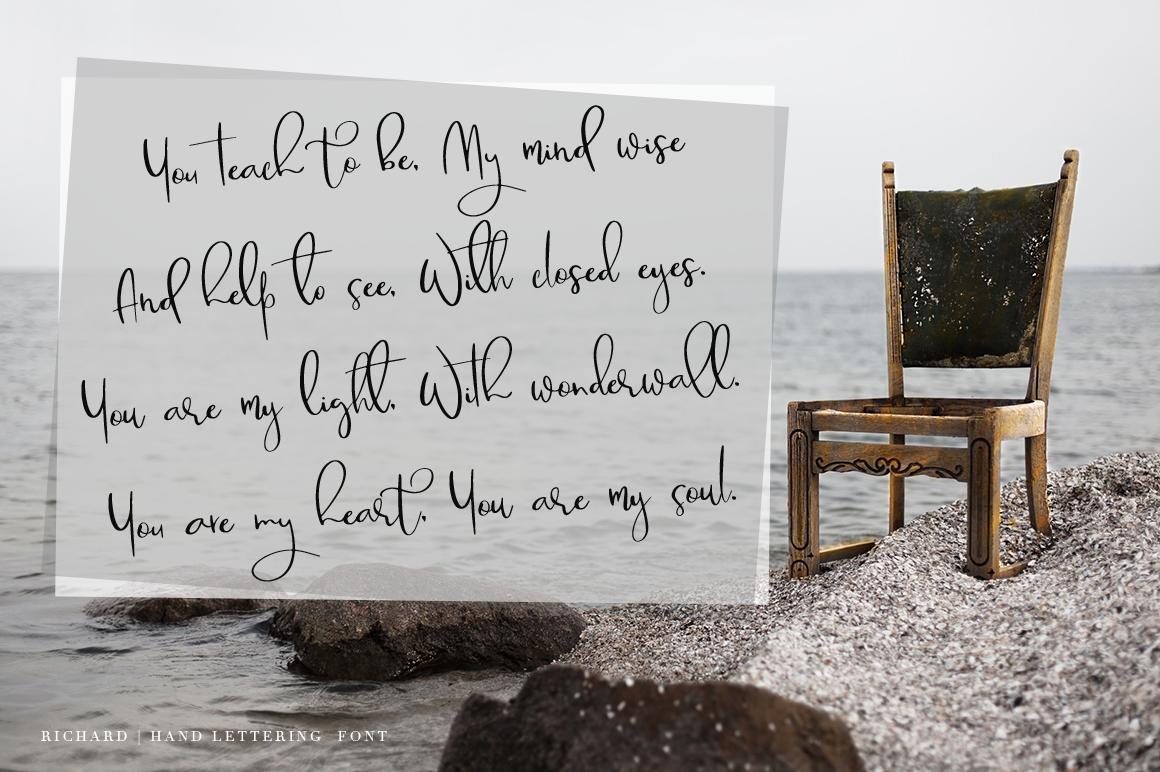 You teach to be, My mind wise
And help to see, With closed eyes.
You are my light, With wonderwall.
You are my heart, You are my soul.
RICHARD | HAND LETTERING FONT